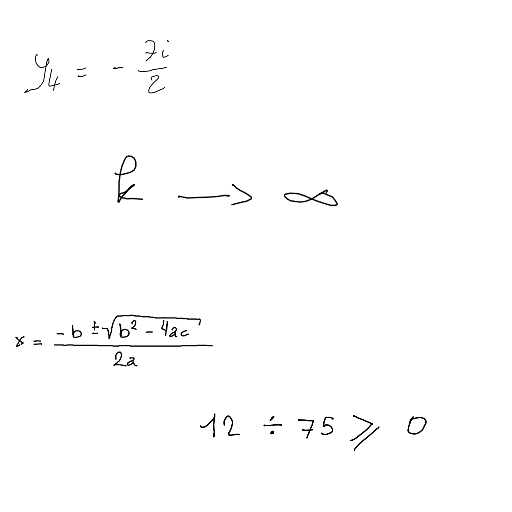 y_4 = - \frac{7i}{2}
k \rightarrow \infty
x = \frac{-b \pm \sqrt{b^2 - 4ac}}{2a}
12 \div 75 \geqslant 0